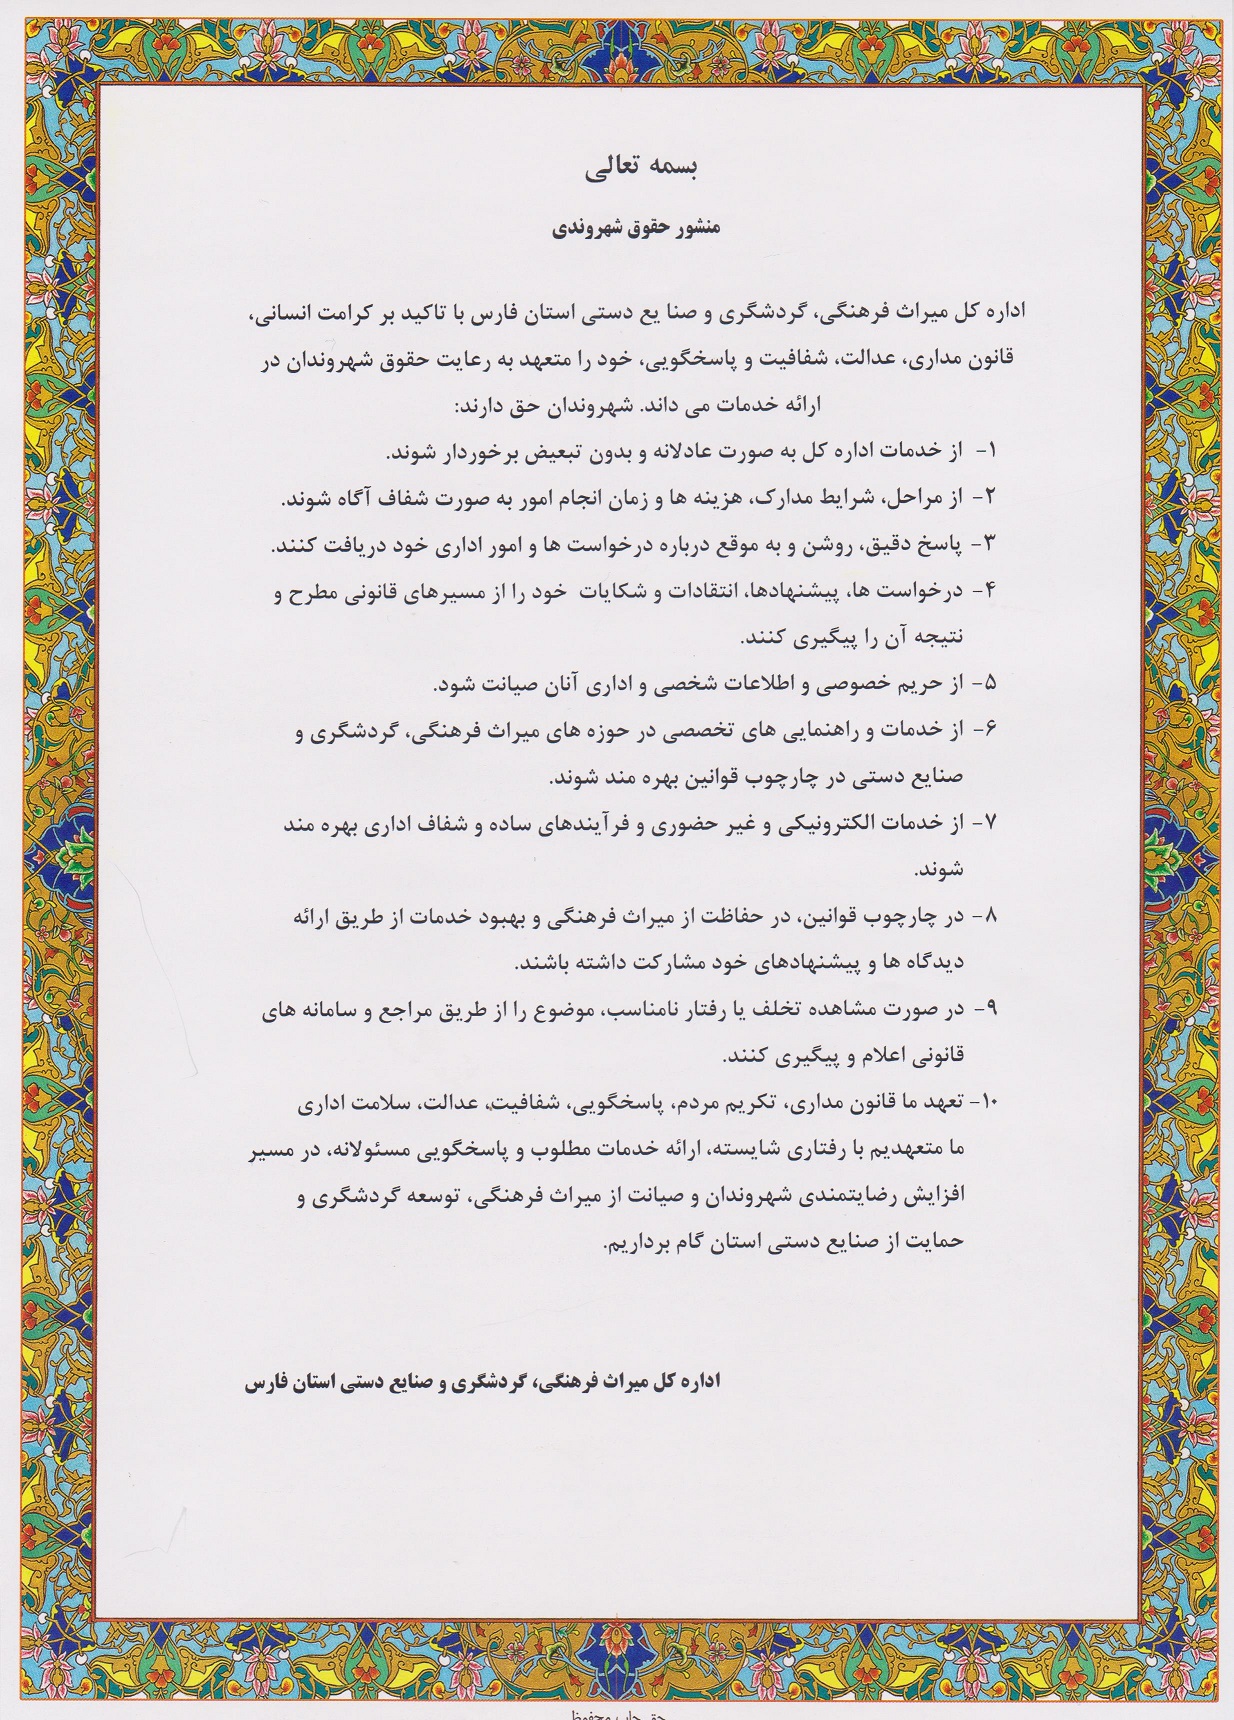 بسمه تعالی
منشور حقوق شهروندی
اداره کل میراث فرهنگی، گردشگری و صنا یع دستی استان فارس با تاکید بر کرامت انسانی،
قانون مداری، عدالت، شفافیت و پاسخگویی، خود را متعهد به رعایت حقوق شهروندان در
ارائه خدمات می داند. شهروندان حق دارند:
۱- از خدمات اداره کل به صورت عادلانه و بدون تبعیض برخوردار شوند.
۲- از مراحل، شرایط مدارک، هزینه ها و زمان انجام امور به صورت شفاف آگاه شوند.
۳- پاسخ دقیق، روشن و به موقع درباره درخواست ها و امور اداری خود دریافت کنند.
۴- درخواست ها، پیشنهادها، انتقادات و شکایات خود را از مسیرهای قانونی مطرح و
نتیجه آن را پیگیری کنند.
۵- از حریم خصوصی و اطلاعات شخصی و اداری آنان صیانت شود.
۶- از خدمات و راهنمایی های تخصصی در حوزه های میراث فرهنگی، گردشگری و
صنایع دستی در چارچوب قوانین بهره مند شوند.
۷- از خدمات الکترونیکی و غیر حضوری و فرآیندهای ساده و شفاف اداری بهره مند
شوند.
۸- در چارچوب قوانین، در حفاظت از میراث فرهنگی و بهبود خدمات از طریق ارائه
دیدگاه ها و پیشنهادهای خود مشارکت داشته باشند.
۹- در صورت مشاهده تخلف یا رفتار نامناسب، موضوع را از طریق مراجع و سامانه های
قانونی اعلام و پیگیری کنند.
۱۰- تعهد ما قانون مداری، تکریم مردم، پاسخگویی، شفافیت، عدالت، سلامت اداری
ما متعهدیم با رفتاری شایسته، ارائه خدمات مطلوب و پاسخگویی مسئولانه، در مسیر
افزایش رضایتمندی شهروندان و صیانت از میراث فرهنگی، توسعه گردشگری و
حمایت از صنایع دستی استان گام برداریم.
اداره کل میراث فرهنگی، گردشگری و صنایع دستی استان فارس